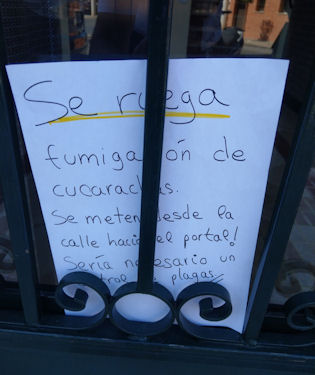 Se ruega
fumigación de
cucarachas.
Se meten desde la
calle hacia el portal!
Sería necesario un
control de plagas